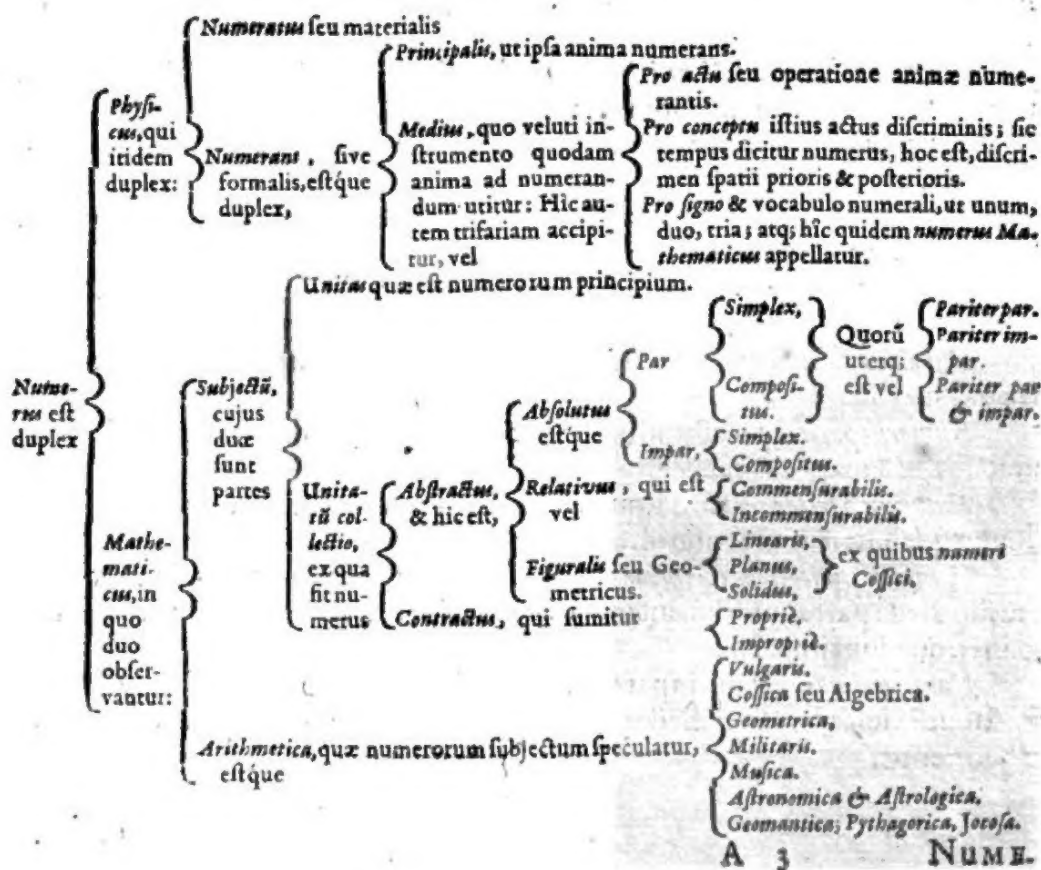 Numeratus ſeu materialis
Principalis, ut ipſa anima numerans.
Pro actu ſeu operatione animæ nume-
rantis.
Phyſi-
cus, qui
itidem
duplex:
Numerans, ſive
formalis, eſtq́ue
duplex,
Medius, quo veluti in-
ſtrumento quodam
anima ad numeran-
dum utitur: Hîc au-
tem trifariam accipi-
tur, vel
Pro conceptu iſtius actus diſcriminis; ſic
tempus dicitur numerus, hoc eſt, diſcri-
men ſpatii prioris & poſterioris.
Pro ſigno & vocabulo numerali, ut unum,
duo, tria; atq; hîc quidem numerus Ma-
thematicus appellatur.
Nume-
rus eſt
duplex
Mathe-
mati-
cus, in
quo
duo
obſer-
vantur:
Subjectũ,
cujus
duæ
ſunt
partes
Unitas quæ eſt numerorum principium.
Unita-
tũ col-
lectio,
ex qua
fit nu-
merus
Abſtractus,
& hic eſt,
Abſolutus
eſtq́ue
Par
Simplex,
Compoſi-
tus.
Quorũ
uterq;
eſt vel
Pariter par.
Pariter im-
par.
Pariter par
& impar.
Impar,
Simplex.
Compoſitus.
Relativus, qui eſt
vel
Commenſurabilis.
Incommenſurabilis.
Figuralis ſeu Geo-
metricus.
Linearis,
Planus,
Solidus,
ex quibus numeri
Coſſici.
Contractus, qui ſumitur
Propriè,
Impropriè.
Arithmetica, quæ numerorum ſubjectum ſpeculatur,
eſtq́ue
Vulgaris.
Coſſica ſeu Algebrica.
Geometrica,
Militaris.
Muſica.
Aſtronomica & Aſtrologica.
Geomantica; Pythagorica, Jocoſa.
A 3 NUME-